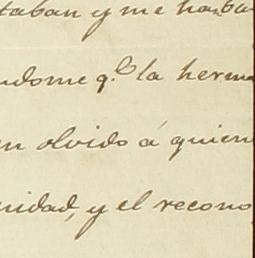 taban y me habla
ndome q.^e la herma
n olvido á quien
nidad, y el recono